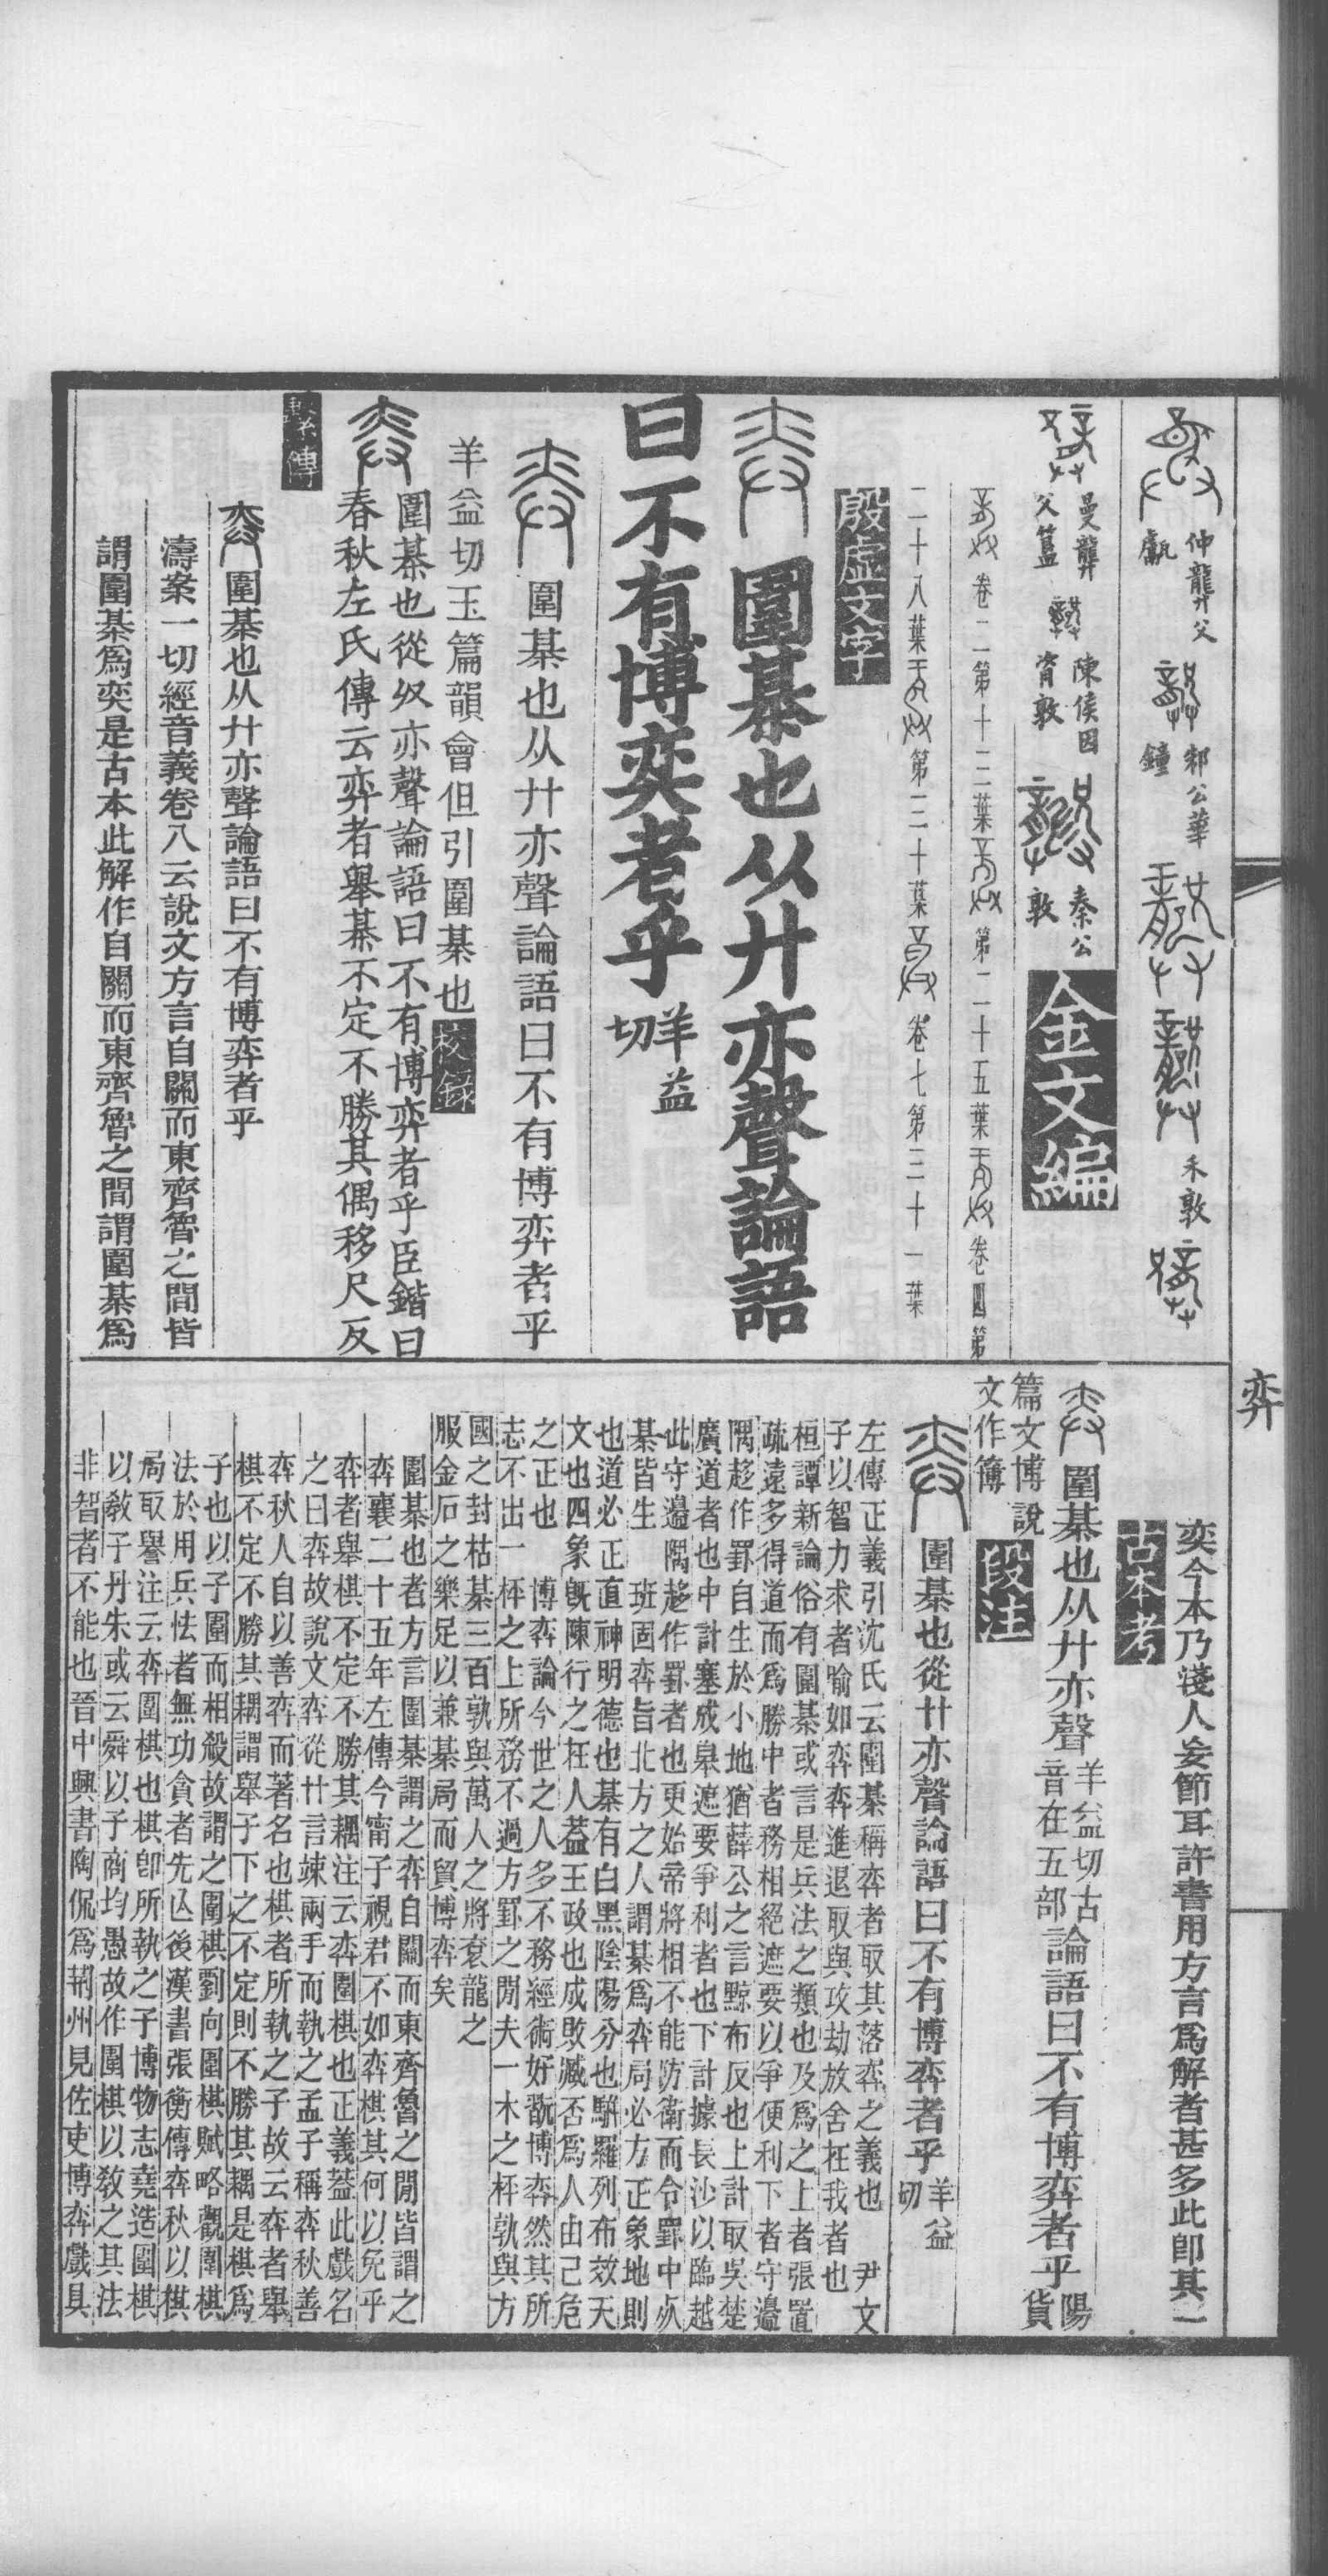 仲龏父甗
邾公華鐘
禾敦
曼龏父簠
陳侯因𬁼敦
秦公敦
金文編
卷二第十三葉
第二十五葉
卷四第二十八葉
第三十葉
卷七第三十一葉
殷虛文字
圍棊也从廾亦聲論語
曰不有博奕者乎羊益切
圍棊也从廾亦聲論語曰不有博弈者乎
羊益切玉篇韻會但引圍棊也校錄
圍棊也從収亦聲論語曰不有博弈者乎臣鍇曰
春秋左氏傳云弈者舉棊不定不勝其偶移尺反
繫傳
圍棊也从廾亦聲論語曰不有博弈者乎
濤案一切經音義卷八云說文方言自關而東齊魯之間皆
謂圍棊爲奕是古本此解作自關而東齊魯之間謂圍棊爲
弈
奕今本乃淺人妄節耳許書用方言爲解者甚多此卽其一
古本考
圍棊也从廾亦聲羊益切古音在五部論語曰不有博弈者乎陽貨
篇文博說文作簙
段注
圍棊也從廾亦聲論語曰不有博弈者乎羊益切
左傳正義引沈氏云圍棊稱弈者取其落弈之義也　尹文
子以智力求者喻如弈弈進退取與攻劫放舍在我者也
桓譚新論俗有圍棊或言是兵法之類也及爲之上者張置
疏遠多得道而爲勝中者務相絕遮要以爭便利下者守邊
隅趍作罫自生於小地猶薛公之言黥布反也上計取吳楚
廣道者也中計塞成皐遮要爭利者也下計據長沙以臨越
此守邊隅趍作罫者也更始帝將相不能防衛而令罫中死
棊皆生　班固弈旨北方之人謂棊爲弈局必方正象地則
也道必正直神明德也棊有白黑陰陽分也駢羅列布效天
文也四象旣陳行之在人葢王政也成敗臧否爲人由己危
之正也　博弈論今世之人多不務經術好翫博弈然其所
志不出一枰之上所務不過方罫之閒夫一木之枰孰與方
國之封枯棊三百孰與萬人之將衮龍之
服金石之樂足以兼棊局而貿博弈矣
圍棊也者方言圍棊謂之弈自關而東齊魯之閒皆謂之
弈襄二十五年左傳今甯子視君不如弈棋其何以免乎
弈者舉棋不定不勝其耦注云弈圍棋也正義葢此戲名
之曰弈故說文弈從廾言竦兩手而執之孟子稱弈秋善
弈秋人自以善弈而著名也棋者所執之子故云弈者舉
棋不定不勝其耦謂舉子下之不定則不勝其耦是棋爲
子也以子圍而相殺故謂之圍棋劉向圍棋賦略觀圍棋
法於用兵怯者無功貪者先亾後漢書張衡傳弈秋以棋
局取譽注云弈圍棋也棋卽所執之子博物志堯造圍棋
以敎子丹朱或云舜以子商均愚故作圍棋以敎之其法
非智者不能也晉中興書陶侃爲荊州見佐吏博弈戲具